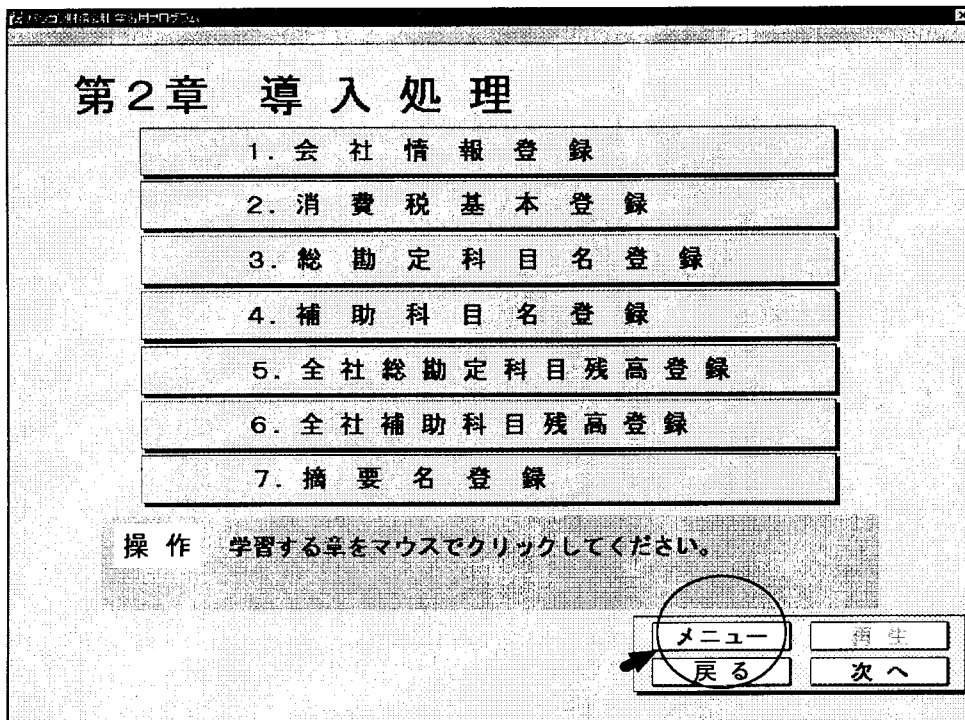 第2章 導入処理
1.会社情報登録
2.消費税基本登録
3.総勘定科目名登録
4.補助科目名登録
5.全社総勘定科目残高登録
6.全社補助科目残高登録
7.摘要名登録
操作 学習する章をマウスでクリックしてください。
メニュー 再生
戻る 次へ